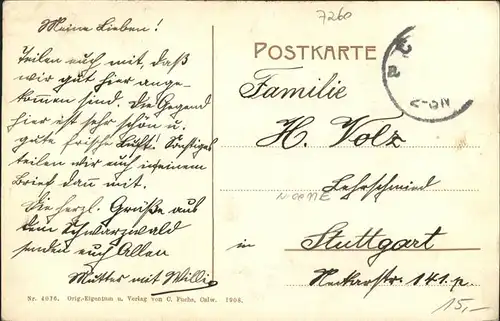 Meine Lieben!
Teilen euch mit, daß
wir gut hier ange-
kommen sind. Die Gegend
hier ist sehr schön u.
gute frische Luft! Sonstiges
teilen wir euch in einem
Brief dann mit.
Die herzl. Grüße aus
dem Schwarzwald
senden euch Allen
Mutter mit Willi
Nr. 4076. Orig.-Eigentum u. Verlag von C. Fuchs, Calw. 1908.
7260
POSTKARTE
Familie
H. Volz
Lehrschmied
in Stuttgart
Neckarstr. 141. p.
15,-